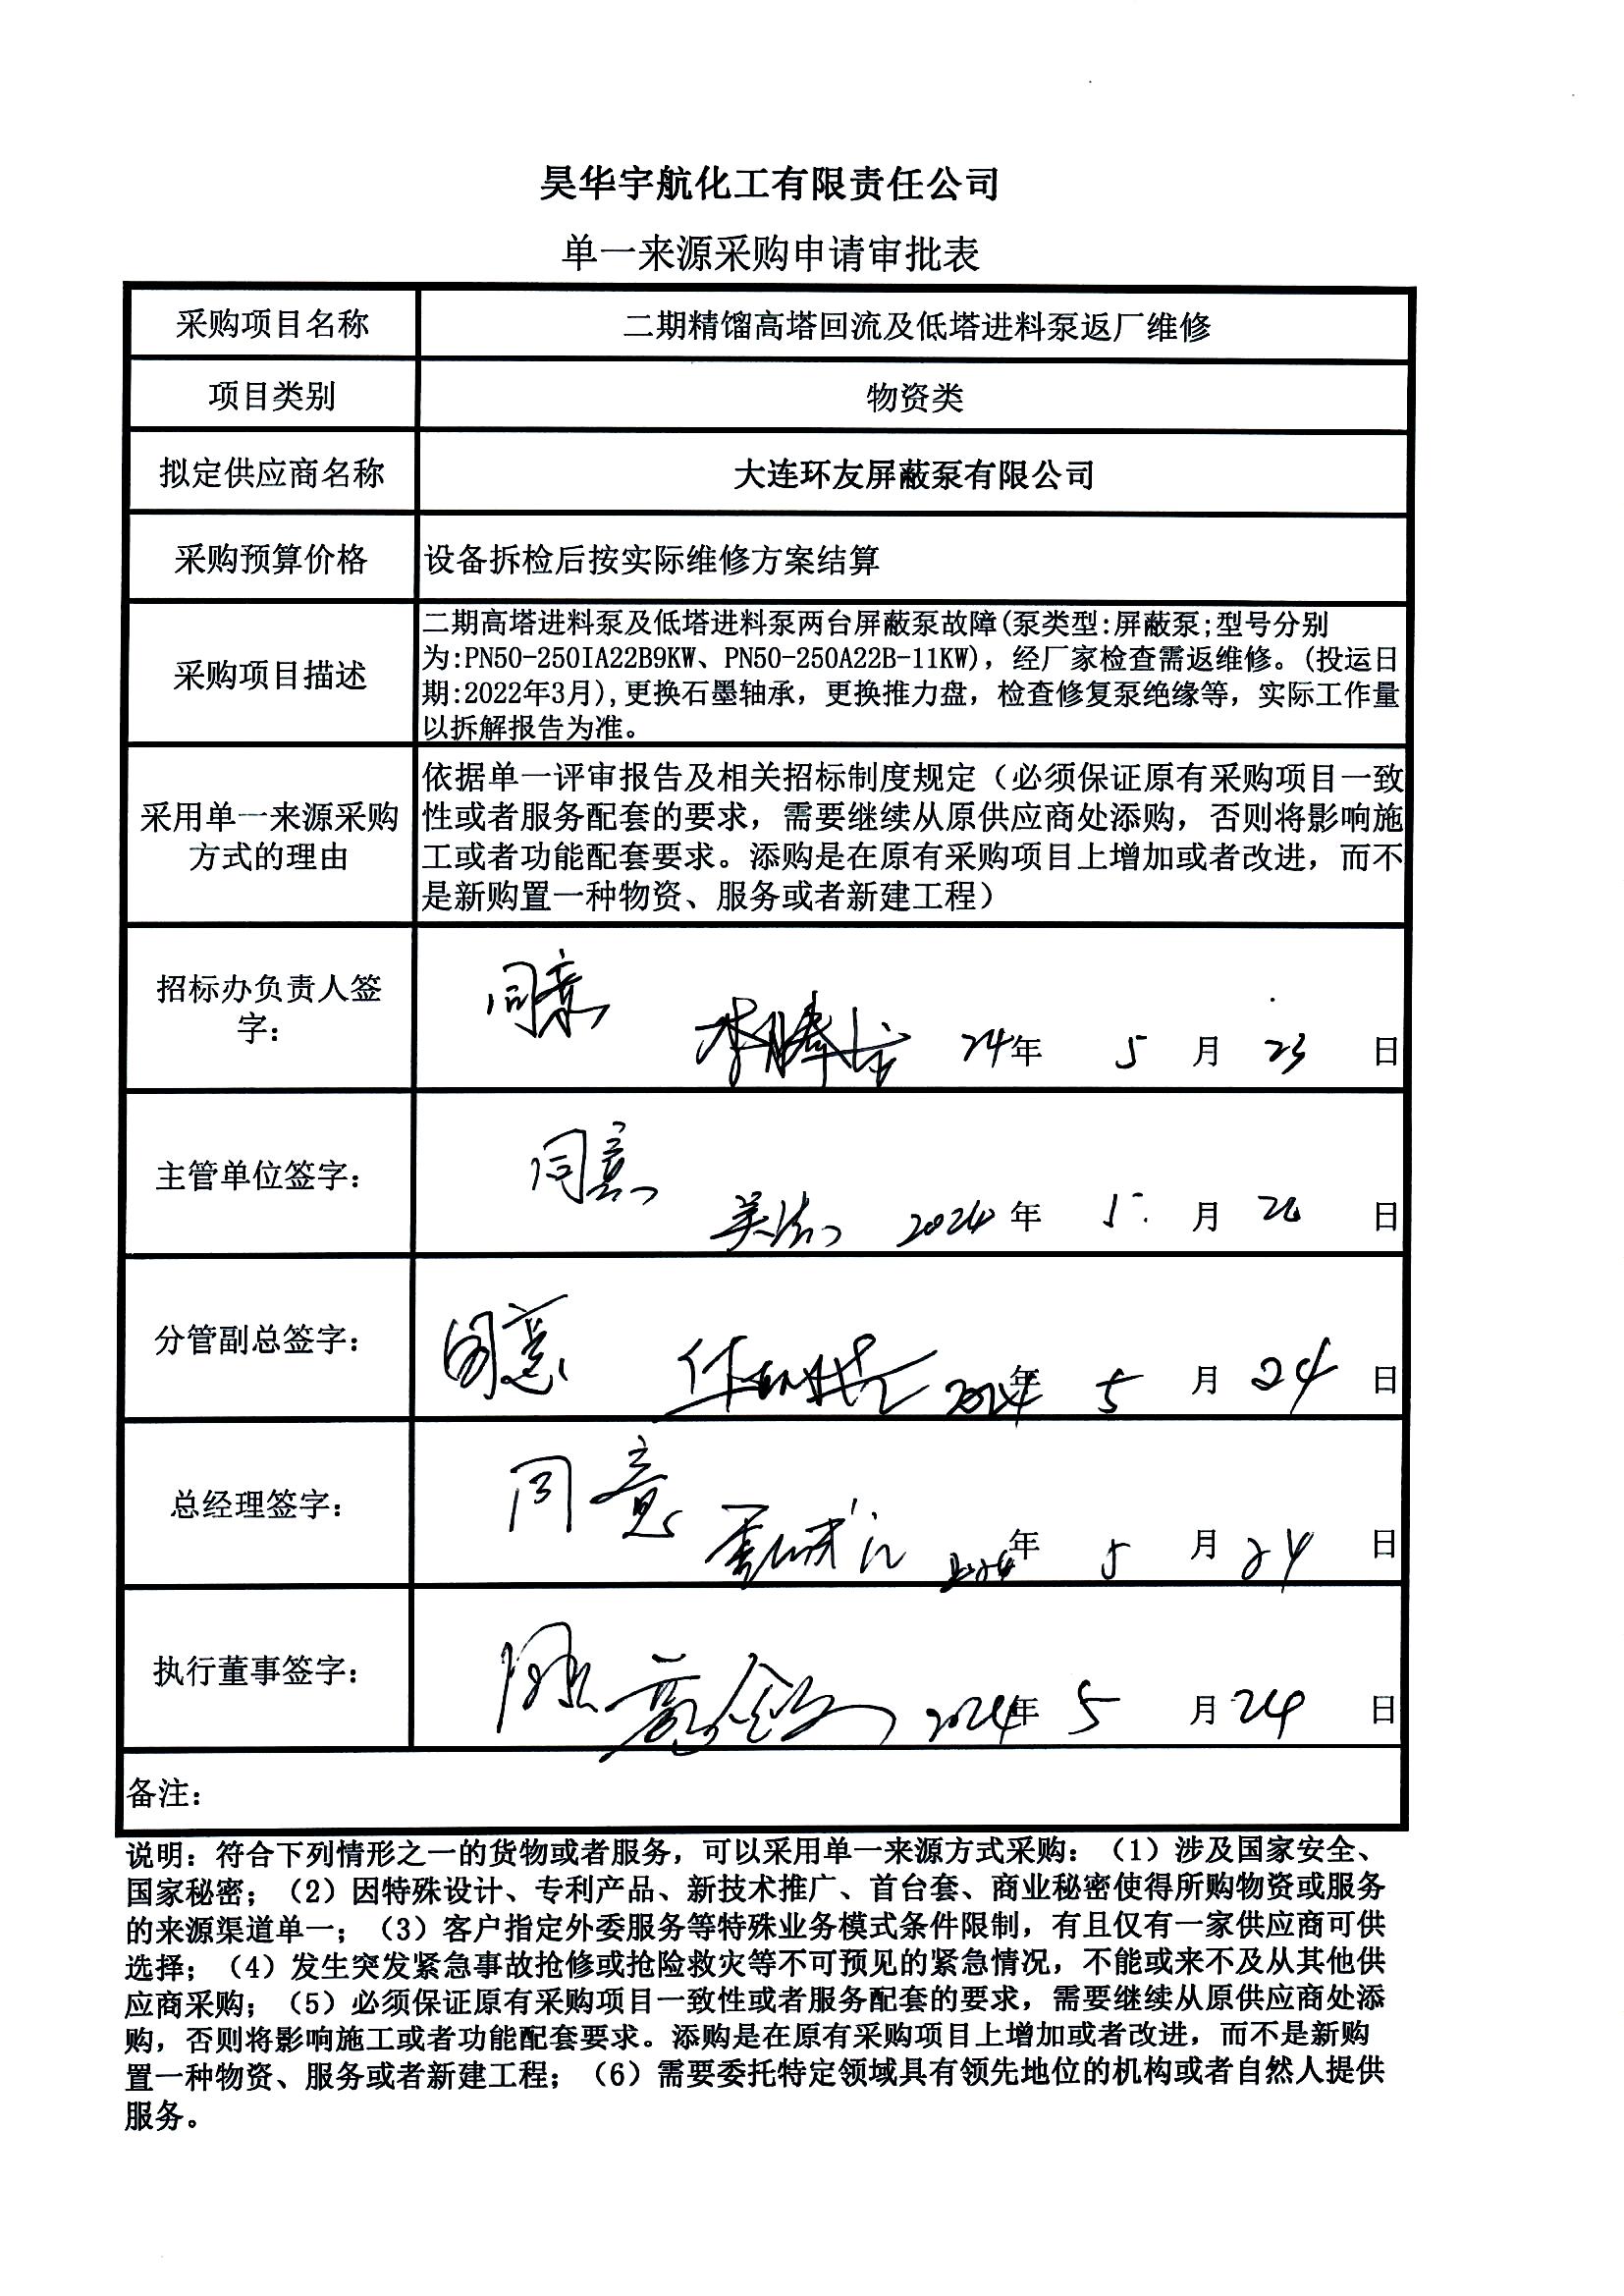 昊华宇航化工有限责任公司
单一来源采购申请审批表
采购项目名称 二期精馏高塔回流及低塔进料泵返厂维修
项目类别 物资类
拟定供应商名称 大连环友屏蔽泵有限公司
采购预算价格 设备拆检后按实际维修方案结算
采购项目描述
二期高塔进料泵及低塔进料泵两台屏蔽泵故障(泵类型:屏蔽泵;型号分别
为:PN50-250IA22B9KW、PN50-250A22B-11KW)，经厂家检查需返维修。(投运日
期:2022年3月),更换石墨轴承，更换推力盘，检查修复泵绝缘等，实际工作量
以拆解报告为准。
采用单一来源采购
方式的理由
依据单一评审报告及相关招标制度规定（必须保证原有采购项目一致
性或者服务配套的要求，需要继续从原供应商处添购，否则将影响施
工或者功能配套要求。添购是在原有采购项目上增加或者改进，而不
是新购置一种物资、服务或者新建工程）
招标办负责人签
字：
同意
24年 5 月 23 日
主管单位签字：
同意
2024年 5 月 日
分管副总签字：
同意
2024年 5 月 24 日
总经理签字：
同意
2024年 5 月 24 日
执行董事签字：
同意
2024年 5 月 24 日
备注：
说明：符合下列情形之一的货物或者服务，可以采用单一来源方式采购：（1）涉及国家安全、
国家秘密；（2）因特殊设计、专利产品、新技术推广、首台套、商业秘密使得所购物资或服务
的来源渠道单一；（3）客户指定外委服务等特殊业务模式条件限制，有且仅有一家供应商可供
选择；（4）发生突发紧急事故抢修或抢险救灾等不可预见的紧急情况，不能或来不及从其他供
应商采购；（5）必须保证原有采购项目一致性或者服务配套的要求，需要继续从原供应商处添
购，否则将影响施工或者功能配套要求。添购是在原有采购项目上增加或者改进，而不是新购
置一种物资、服务或者新建工程；（6）需要委托特定领域具有领先地位的机构或者自然人提供
服务。